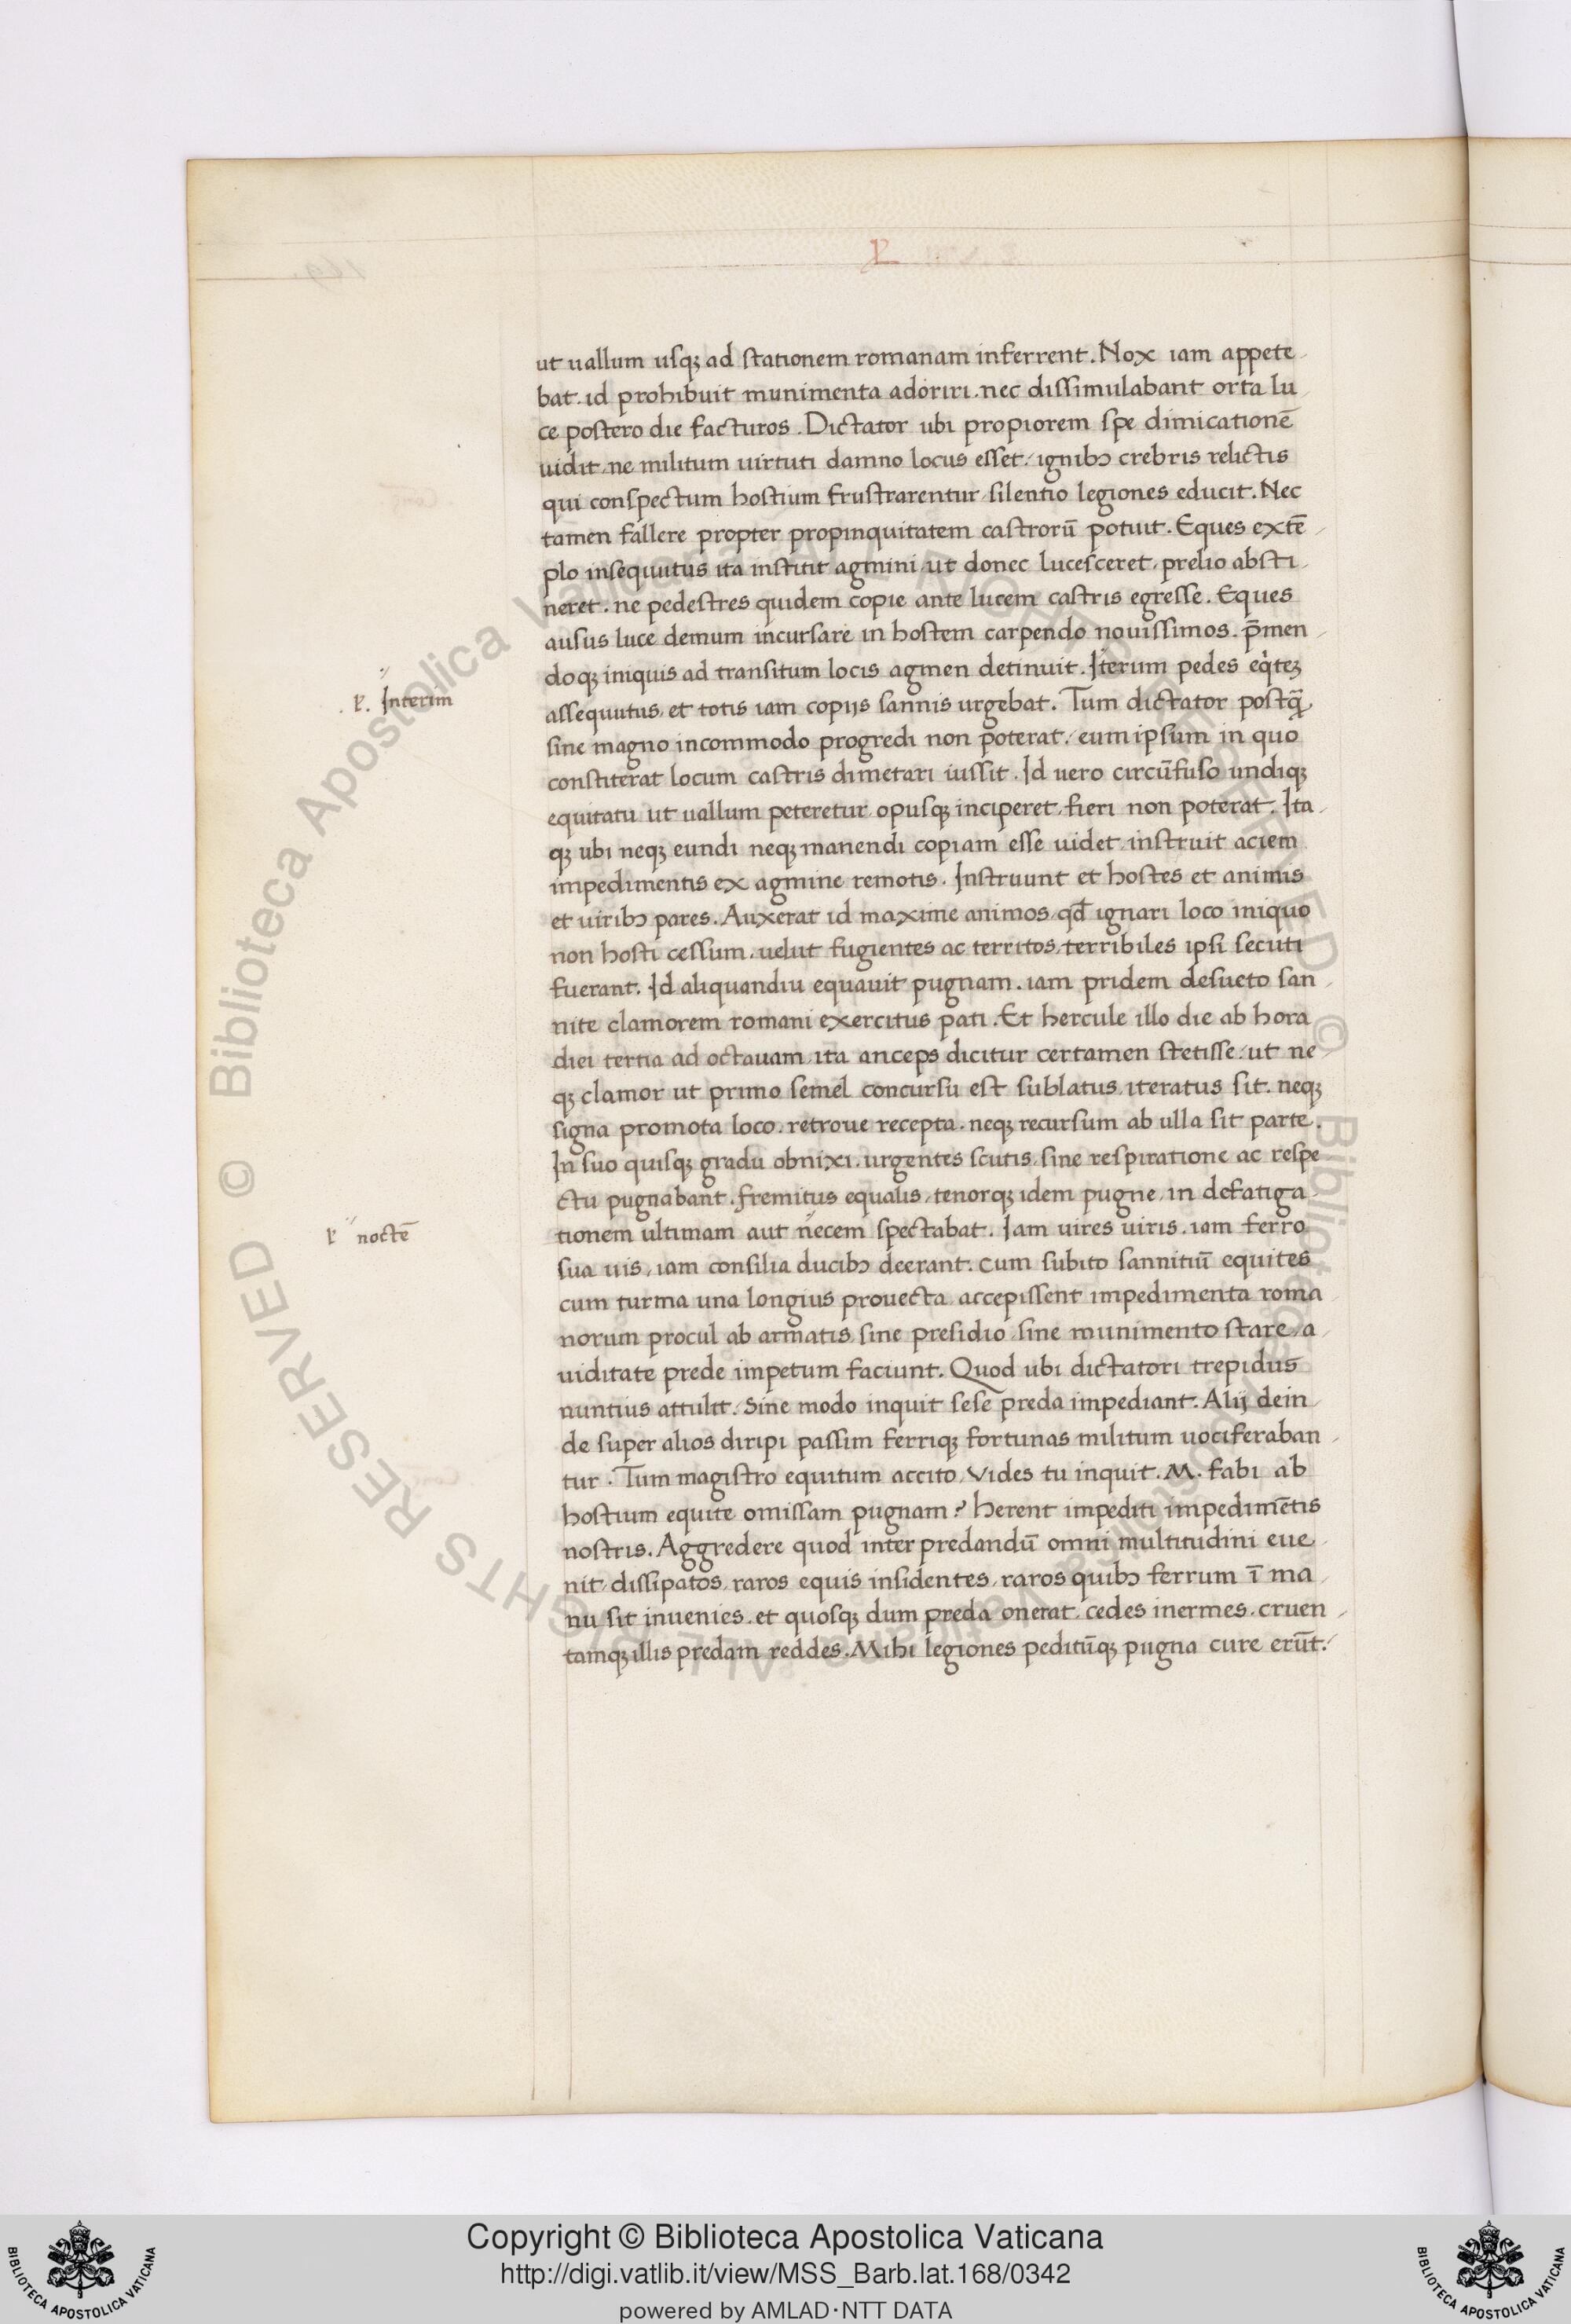 L
ut uallum usqꝫ ad stationem romanam inferrent. Nox iam appete
bat. id prohibuit munimenta adoriri. nec dissimulabant orta lu
ce postero die facturos. Dictator ubi propiorem spe dimicationē
uidit. ne militum uirtuti damno locus esset. ignibꝫ crebris relictis
qui conspectum hostium frustrarentur silentio legiones educit. Nec
tamen fallere propter propinquitatem castrorū potuit. Eques extē
plo insequutus ita institit agmini. ut donec lucesceret. prelio absti
neret. ne pedestres quidem copie ante lucem castris egresse. Eques
ausus luce demum incursare in hostem carpendo nouissimos. p̄men
doqꝫ iniquis ad transitum locis agmen detinuit. Iterum pedes eqitez
l. Interim
assequutus. et totis iam copijs sannis urgebat. Tum dictator postq̄
sine magno incommodo progredi non poterat. eum ipsum in quo
constiterat locum castris dimetari iussit. Id uero circūfuso undiqꝫ
equitatu ut uallum peteretur opusqꝫ inciperet. fieri non poterat. Ita
qꝫ ubi neqꝫ eundi neqꝫ manendi copiam esse uidet. instruit aciem
impedimentis ex agmine remotis. Instruunt et hostes et animis
et uiribꝫ pares. Auxerat id maxime animos. qd̄ ignari loco iniquo
non hosti cessum. uelut fugientes ac territos. terribiles ipsi secuti
fuerant. Id aliquandiu equauit pugnam. iam pridem desueto san
nite clamorem romani exercitus pati. Et hercule illo die ab hora
diei tertia ad octauam ita anceps dicitur certamen stetisse. ut ne
qꝫ clamor ut primo semel concursu est sublatus. iteratus sit. neqꝫ
signa promota loco. retroue recepta. neqꝫ recursum ab ulla sit parte.
In suo quisqꝫ gradu obnixi. urgentes scutis. sine respiratione ac respe
ctu pugnabant. fremitus equalis. tenorqꝫ idem pugne. in defatiga
l noctē
tionem ultimam aut necem spectabat. Iam uires uiris. iam ferro
sua uis. iam consilia ducibꝫ deerant. cum subito sannitiū equites
cum turma una longius prouecta accepissent impedimenta roma
norum procul ab armatis sine presidio sine munimento stare. a
uiditate prede impetum faciunt. Quod ubi dictatori trepidus
nuntius attulit. Sine modo inquit sese preda impediant. Alij dein
de super alios diripi passim ferriqꝫ fortunas militum uociferaban
tur. Tum magistro equitum accito. Vides tu inquit. M. fabi ab
hostium equite omissam pugnam? herent impediti impedimētis
nostris. Aggredere quod inter predandū omni multitudini eue
nit. dissipatos. raros equis insidentes. raros quibꝫ ferrum ī ma
nu sit inuenies. et quosqꝫ dum preda onerat. cedes inermes. cruen
tamqꝫ illis predam reddes. Mihi legiones peditūqꝫ pugna cure erūt.
© Biblioteca Apostolica Vaticana ALL RIGHTS RESERVED © Biblioteca Apostolica Vaticana ALL RIGHTS RESERVED
BIBLIOTECA APOSTOLICA VATICANA
Copyright © Biblioteca Apostolica Vaticana
http://digi.vatlib.it/view/MSS_Barb.lat.168/0342
powered by AMLAD·NTT DATA
BIBLIOTECA APOSTOLICA VATICANA